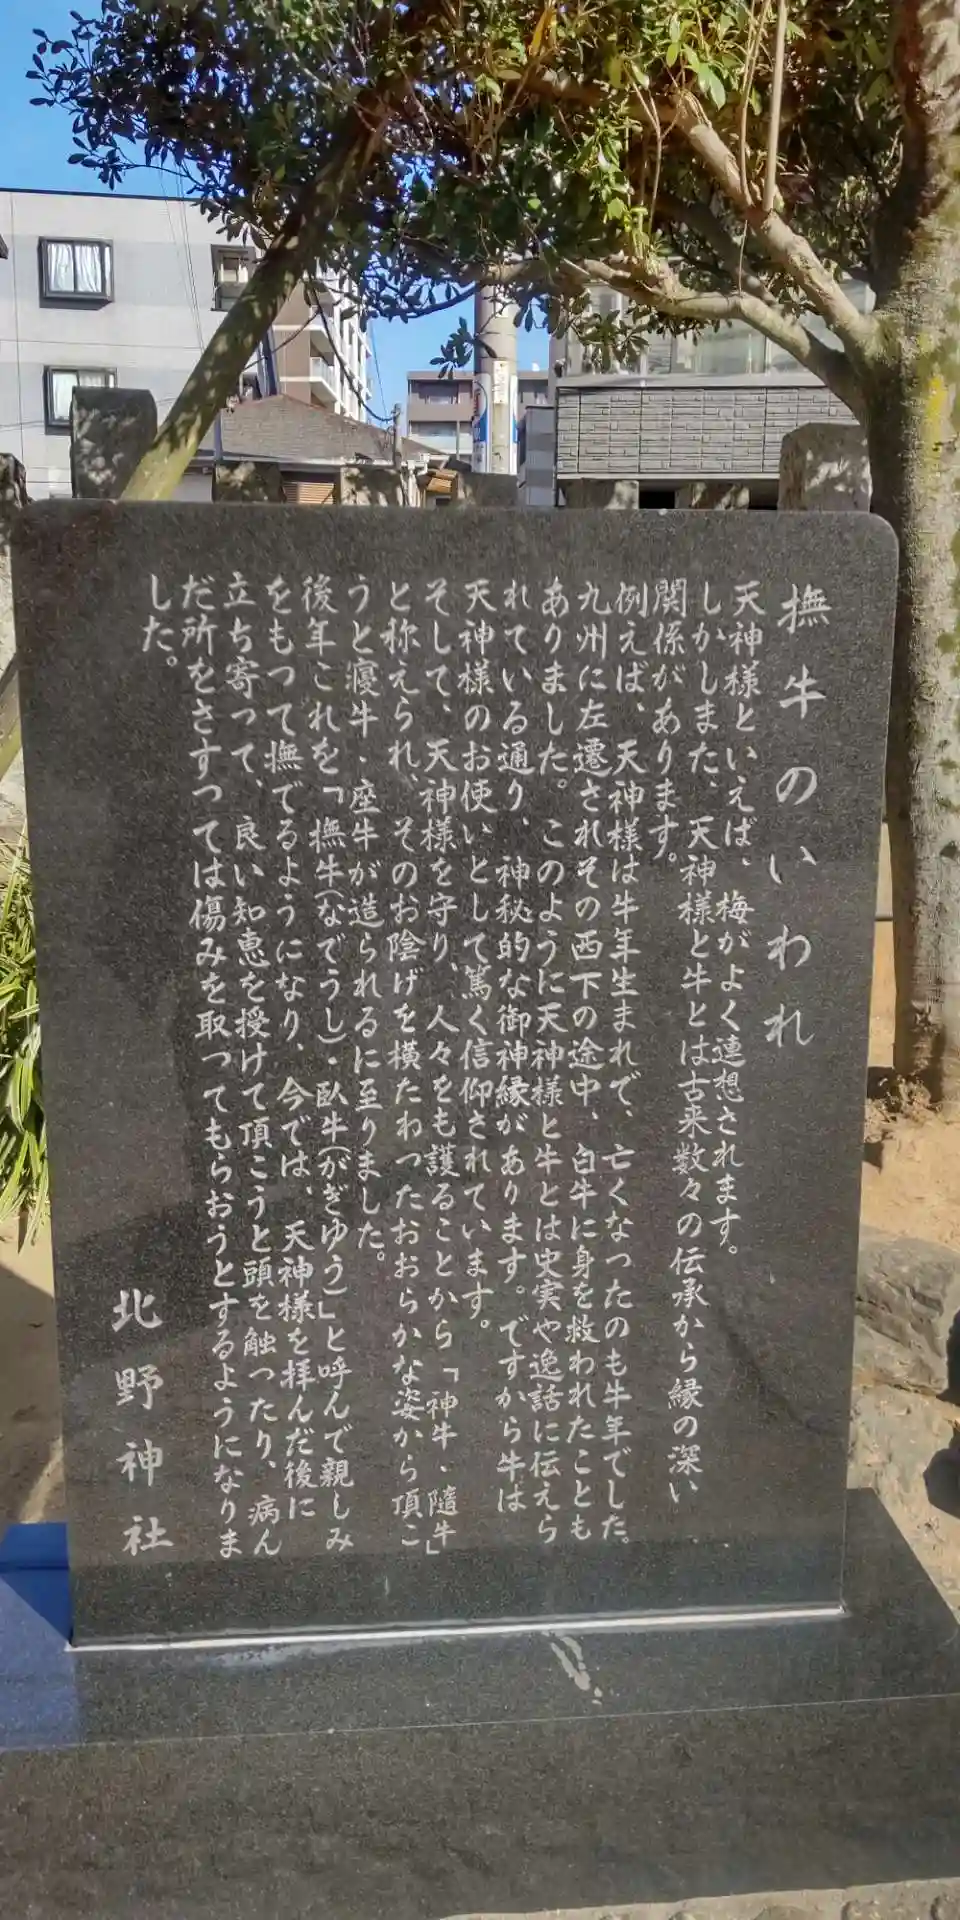 撫牛のいわれ
天神様といえば、梅がよく連想されます。
しかしまた、天神様と牛とは古来数々の伝承から縁の深い
関係があります。
例えば、天神様は牛年生まれで、亡くなつたのも牛年でした。
九州に左遷されその西下の途中、白牛に身を救われたことも
ありました。このように天神様と牛とは史実や逸話に伝えら
れている通り、神秘的な御神縁があります。ですから牛は
天神様のお使いとして篤く信仰されています。
そして、天神様を守り、人々をも護ることから「神牛・随牛」
と称えられ、そのお陰げを横たわつたおおらかな姿から頂こ
うと寝牛・座牛が造られるに至りました。
後年これを「撫牛(なでうし)・臥牛(がぎゆう)」と呼んで親しみ
をもつて撫でるようになり、今では、天神様を拝んだ後に
立ち寄つて、良い知恵を授けて頂こうと頭を触つたり、病ん
だ所をさすつては傷みを取つてもらおうとするようになりま
した。
北野神社